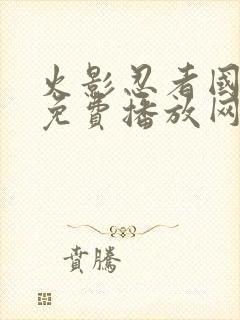 火影忍者國
免費播放网
賁騰